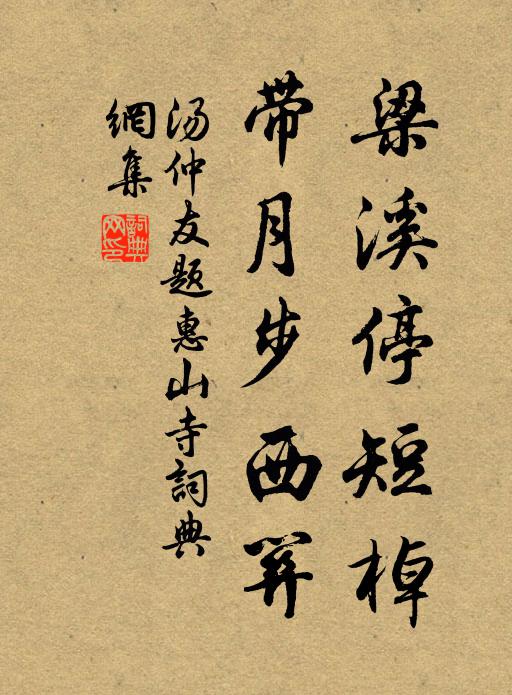 梁溪停短棹
带月步西關
汤仲友题惠山寺詞典
網集
詞典
网印